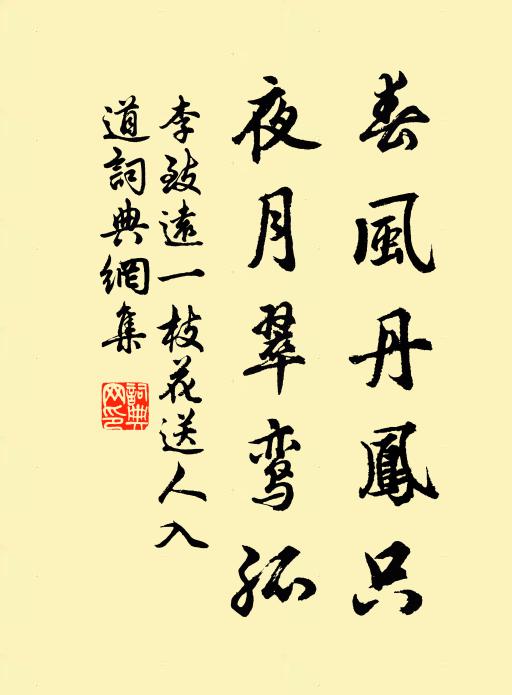 春風丹鳳只
夜月翠鸾孤
李致遠一枝花送人入
道詞典網集
詞典
网印